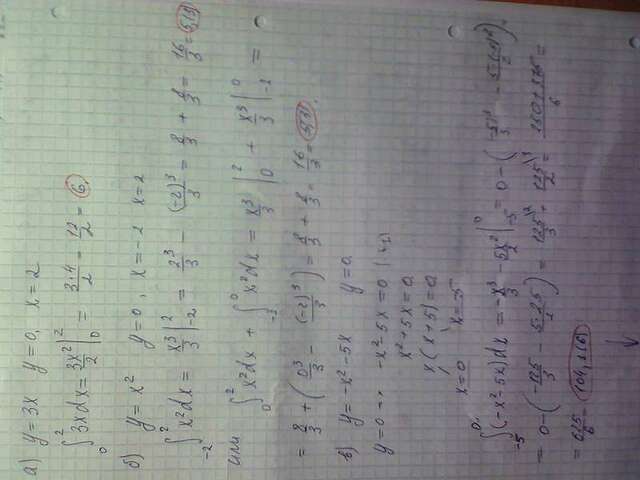 а) y = 3x   y = 0, x = 2
∫₀² 3x dx = 3x²/2 |₀² = 3·4/2 = 12/2 = 6
б) y = x²   y = 0, x = -2   x = 2
∫₋₂² x² dx = x³/3 |₋₂² = 2³/3 - (-2)³/3 = 8/3 + 8/3 = 16/3 =
или ∫₀² x² dx + ∫₋₂⁰ x² dx = x³/3 |₀² + x³/3 |₋₂⁰ =
= 8/3 + (0³/3 - (-2)³/3) = 8/3 + 8/3 = 16/3 =
в) y = -x² - 5x   y = 0
y = 0 -x² - 5x = 0
x² + 5x = 0
x(x + 5) = 0
x = 0   x = -5
∫₋₅⁰ (-x² - 5x) dx = -x³/3 - 5x²/2 |₋₅⁰ = 0 - (
= 0 - (-125/3   5·25/2) = 125/3 + 125/2 = /6 =
= 625/6 =